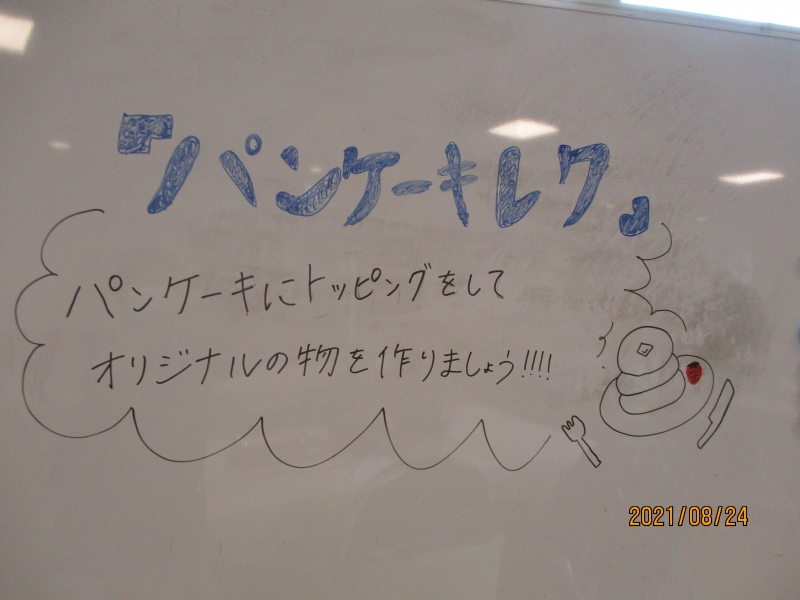 『パンケーキレク』
パンケーキにトッピングをして
オリジナルの物を作りましょう!!!!
2021/08/24